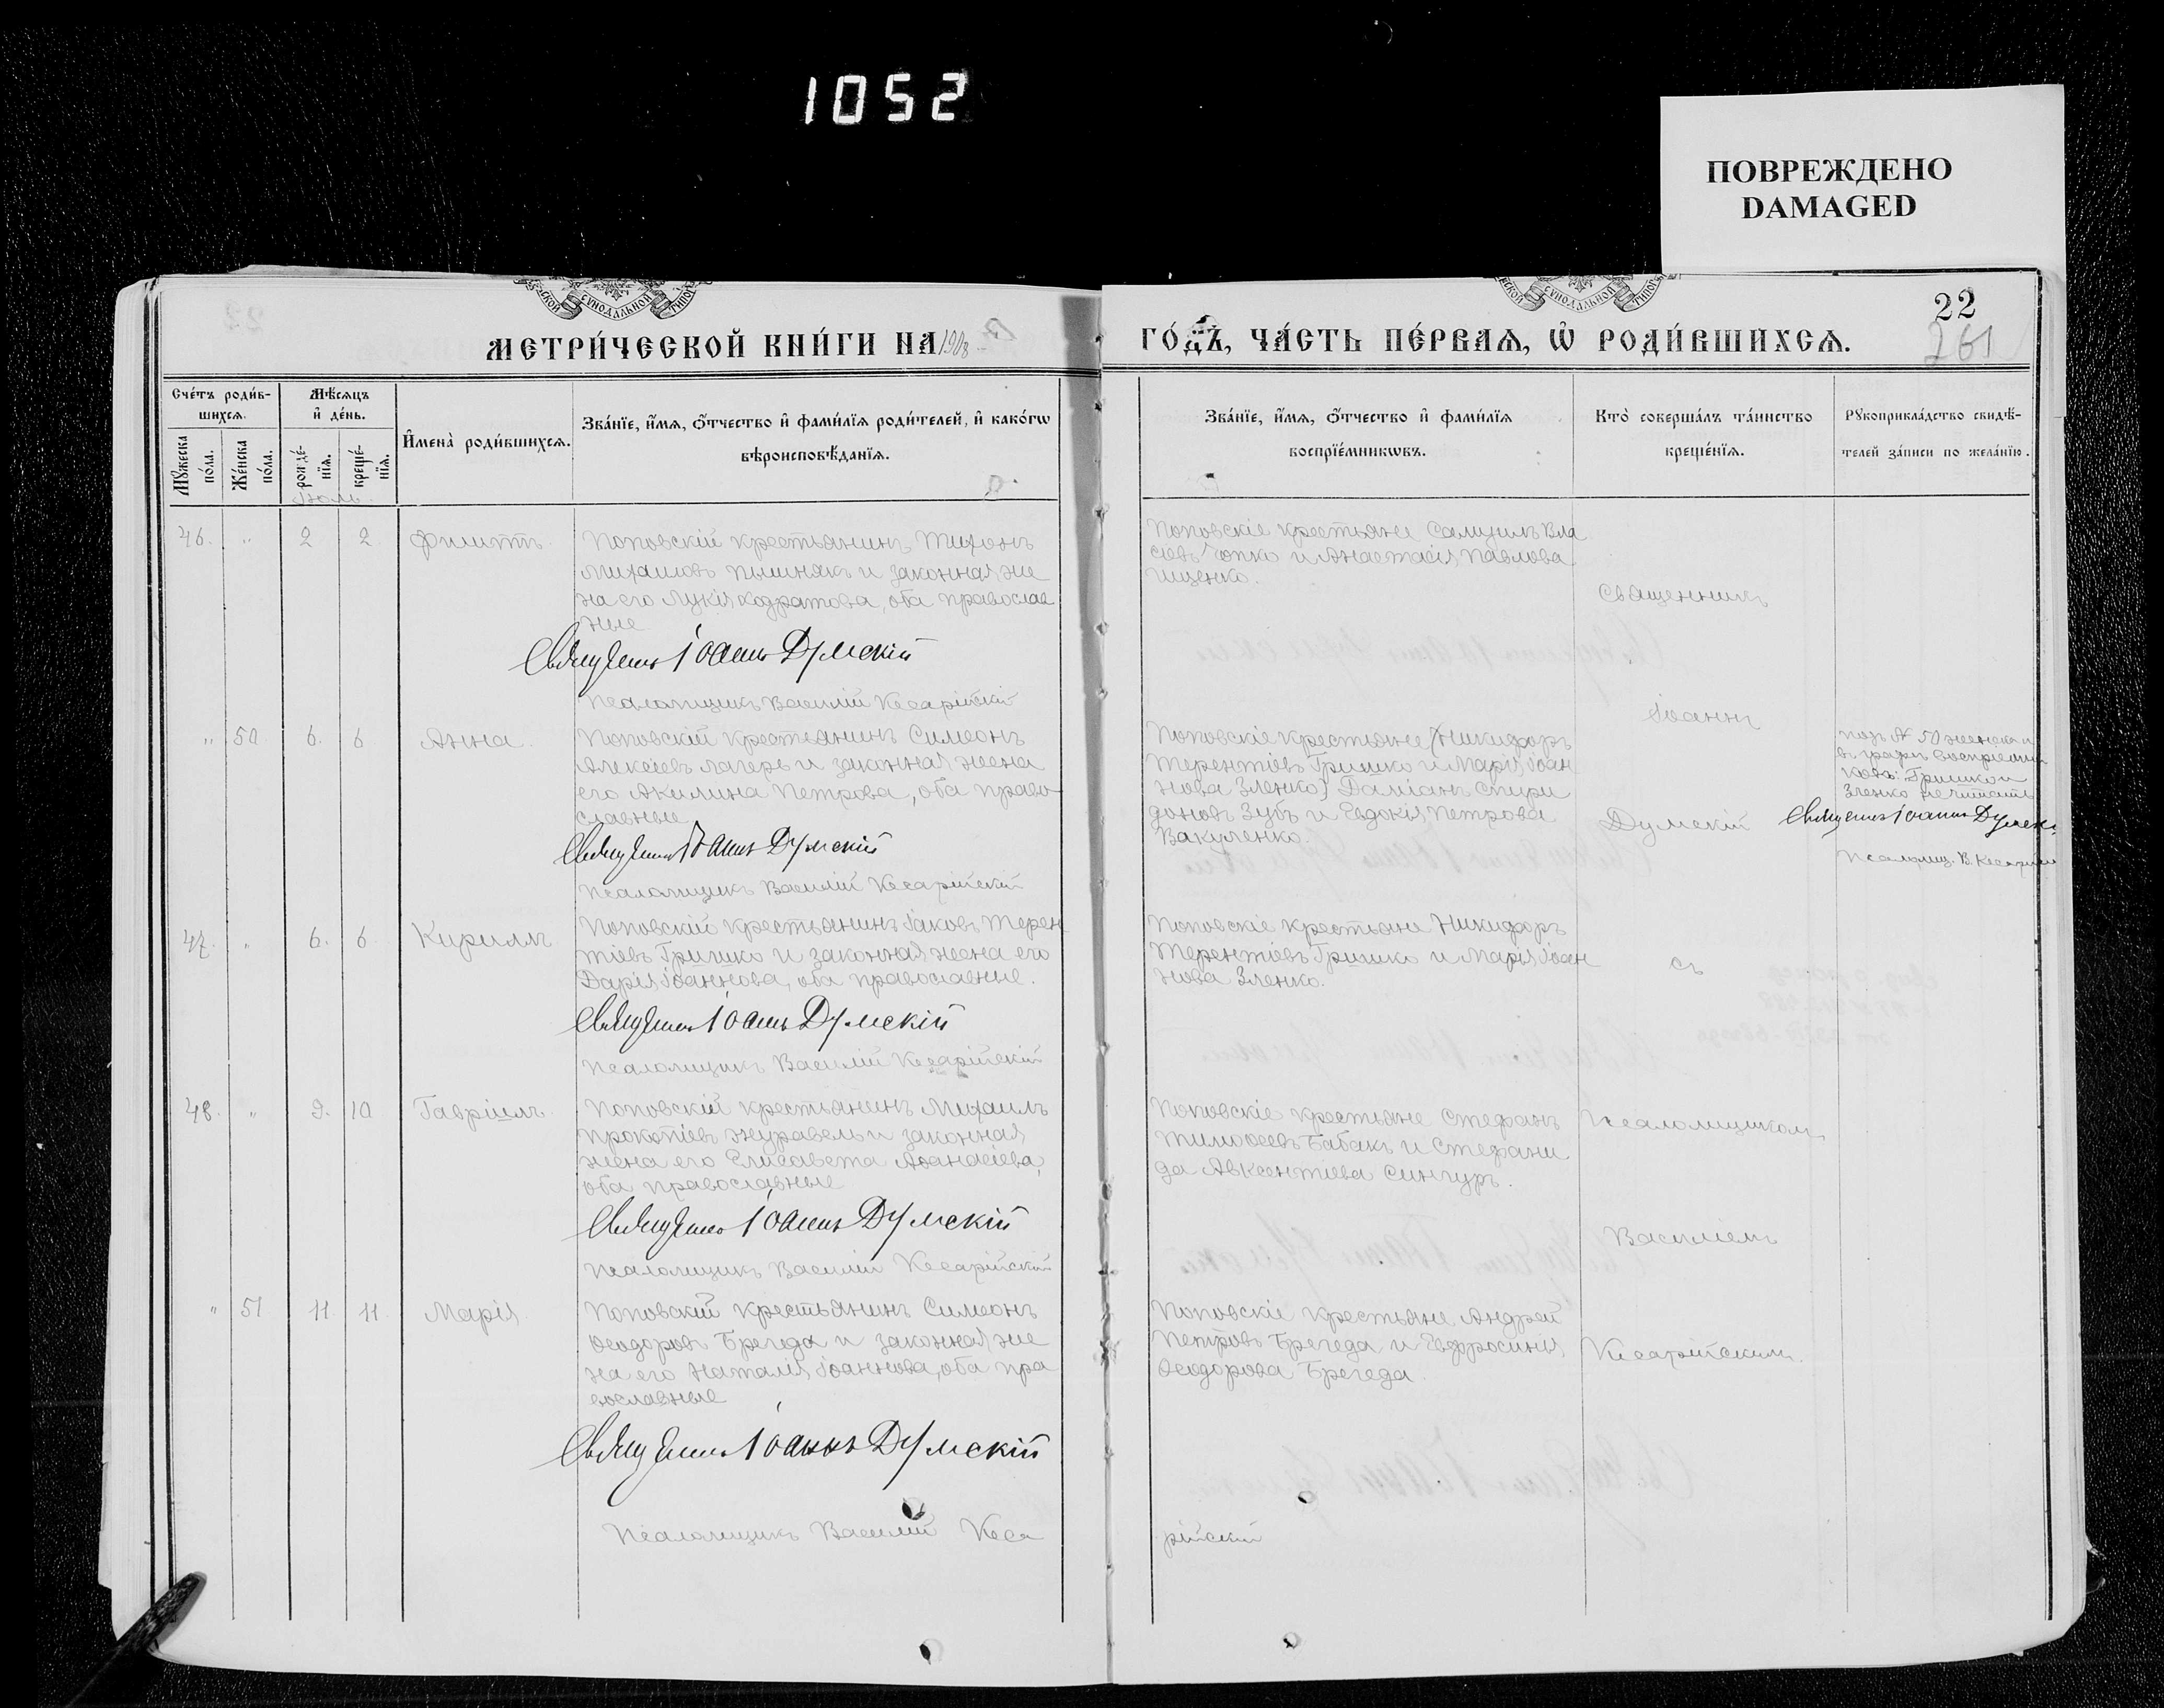 1052
ПОВРЕЖДЕНО
DAMAGED
22
261
МЕТРИ́ЧЕСКОЙ КНИ́ГИ НА 1913
ГО́ДЪ, ЧА́СТЬ ПЕ́РВАѦ, Ѡ҆ РОДИ́ВШИХСѦ.
Сче́тъ роди́в-
шихсѧ.
Мꙋ́жеска по́ла.
Же́нска по́ла.
Мѣ́сѧцъ
и҆ де́нь.
рожде́-
нїѧ.
креще́-
нїѧ.
И҆мена̀ роди́вшихсѧ.
Зва́нїе, и҆́мѧ, ѻ҆́тчество и҆ фами́лїѧ роди́телей, и҆ како́гѡ
вѣроисповѣ́данїѧ.
Зва́нїе, и҆́мѧ, ѻ҆́тчество и҆ фами́лїѧ
воспрїе́мникѡвъ.
Кто̀ соверша́лъ та́инство
креще́нїѧ.
Рꙋкоприкла́дство свидѣ́-
телей за́писи по жела́нїю.
Іюль
46. " 2 2 Филиппъ
Поповскій крестьянинъ Тихонъ
Михаиловъ Пышнякъ и законная же
на его Лукія Кодратова, оба православ
ные
Священникъ Іоаннъ Думскій
Псаломщикъ Василій Кесарійскій
Поповскіе крестьяне Самуилъ Вла
сіевъ и Анастасія Павлова
Ищенко.
Священникъ
Іоаннъ
Думскій
съ
Псаломщикомъ
Василіемъ
Кесарійскимъ.
" 50. 6. 6 Анна.
Поповскій крестьянинъ Симеонъ
Алексіевъ Лагерь и законная жена
его Акилина Петрова, оба право-
славные
Священникъ Іоаннъ Думскій
Псаломщикъ Василій Кесарійскій
Поповскіе крестьяне (Никифоръ
Терентіевъ Гришко и Марія Іоан
нова Зленко) Даміанъ Спири
доновъ Зубъ и Евдокія Петрова
Вакуленко.
под № 50 женска п
въ графѣ воспріемни
ковъ: Гришко и
Зленко не читать
Священникъ Іоаннъ Думск
Псаломщ. В. Кесарійскі
47. " 6. 6 Кириллъ
Поповскій крестьянинъ Іаковъ Терен
тіевъ Гришко и законная жена его
Дарія Іоаннова, оба православные.
Священникъ Іоаннъ Думскій
Псаломщикъ Василій Кесарійскій
Поповскіе крестьяне Никифоръ
Терентіевъ Гришко и Марія Іоан
нова Зленко.
48. " 9. 10 Гавріилъ
Поповскій крестьянинъ Михаилъ
Прокопіевъ Журавель и законная
жена его Елисавета Аѳанасіева,
оба православные
Священникъ Іоаннъ Думскій
Псаломщикъ Василій Кесарійскій
Поповскіе крестьяне Стефанъ
Тимоѳеевъ Бабакъ и Стефани
да Авксентіева Сингуръ.
" 51 11. 11. Марія
Поповскій крестьянинъ Симеонъ
Ѳеодоровъ Брегеда и законная же
на его Наталія Іоаннова, оба пра
вославные
Священникъ Іоаннъ Думскій
Поповскіе крестьяне Андрей
Петровъ Брегеда и Евфросинія
Ѳеодорова Брегеда.
Псаломщикъ Василій Кеса
рійскій